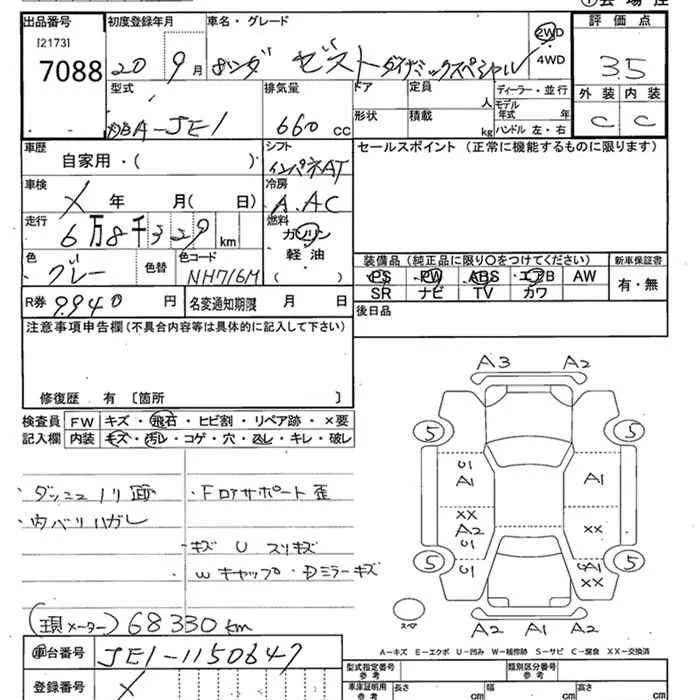 出品番号 初度登録年月 車名・グレード 評価点
[2173]
7088 20 9月 ホンダ ゼスト ダイナミックスペシャル 2WD・4WD 3.5
型式 排気量 ドア 定員 人 ディーラー・並行 外装 内装
A-JE1 660 cc 形状 積載 kg モデル年式 年 ハンドル 左・右 C C
車歴 シフト セールスポイント (正常に機能するものに限ります)
自家用・( ) インパネAT
車検 冷房
X 年 月( 日) A.AC
走行 燃料
6万8千329km ガソリン
軽油
( )
装備品 (純正品に限り○をつけてください) 新車保証書
色 色替 色コード PS PW ABS エアB AW 有・無
グレー NH716M SR ナビ TV カワ
R券 9.940 円 名変通知期限 月 日 後日品
注意事項申告欄(不具合内容等は具体的に記入して下さい)
修復歴 有 [箇所 ]
検査員 FW キズ・飛石・ヒビ割・リペア跡・×要
記入欄 内装 キズ・汚レ・コゲ・穴・ゐレ・キレ・破レ
・ダッシュノリ面 ・Fロアサポート歪
・内バリハガレ
・キズ U スリキズ
Wキャップ・Dミラーキズ
A3 A2
5 5
U1 A1
A1
XX XX
A2
U1 A1
XX
5 5
スペア
A2 A1 A2
(現メーター) 68330km
A-キズ E-エクボ U-凹み W-補修跡 S-サビ C-腐食 XX-交換済
車台番号 JE1-1150647
登録番号 X
型式指定番号 参考 類別区分番号 参考
車庫証明用 参考 長さ cm 幅 cm 高さ cm